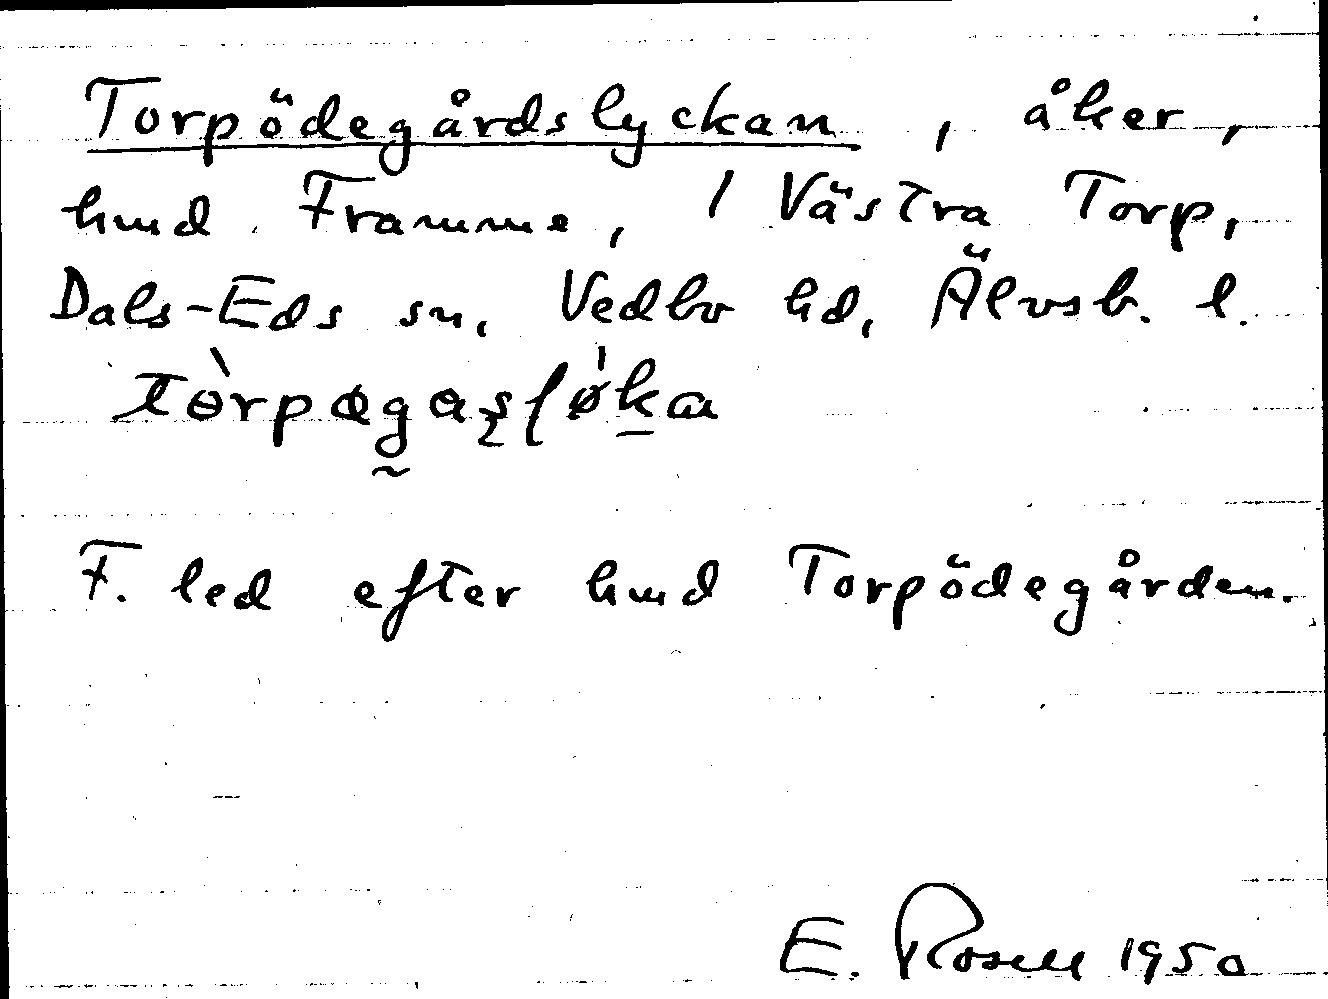 Torpödegårdslyckan, åker,
hmd Framme, 1 Västra Torp,
Dals-Eds sn, Vedbo hd, Älvsb. l.
F. led efter hmd Torpödegården.
E. Rosell 1950